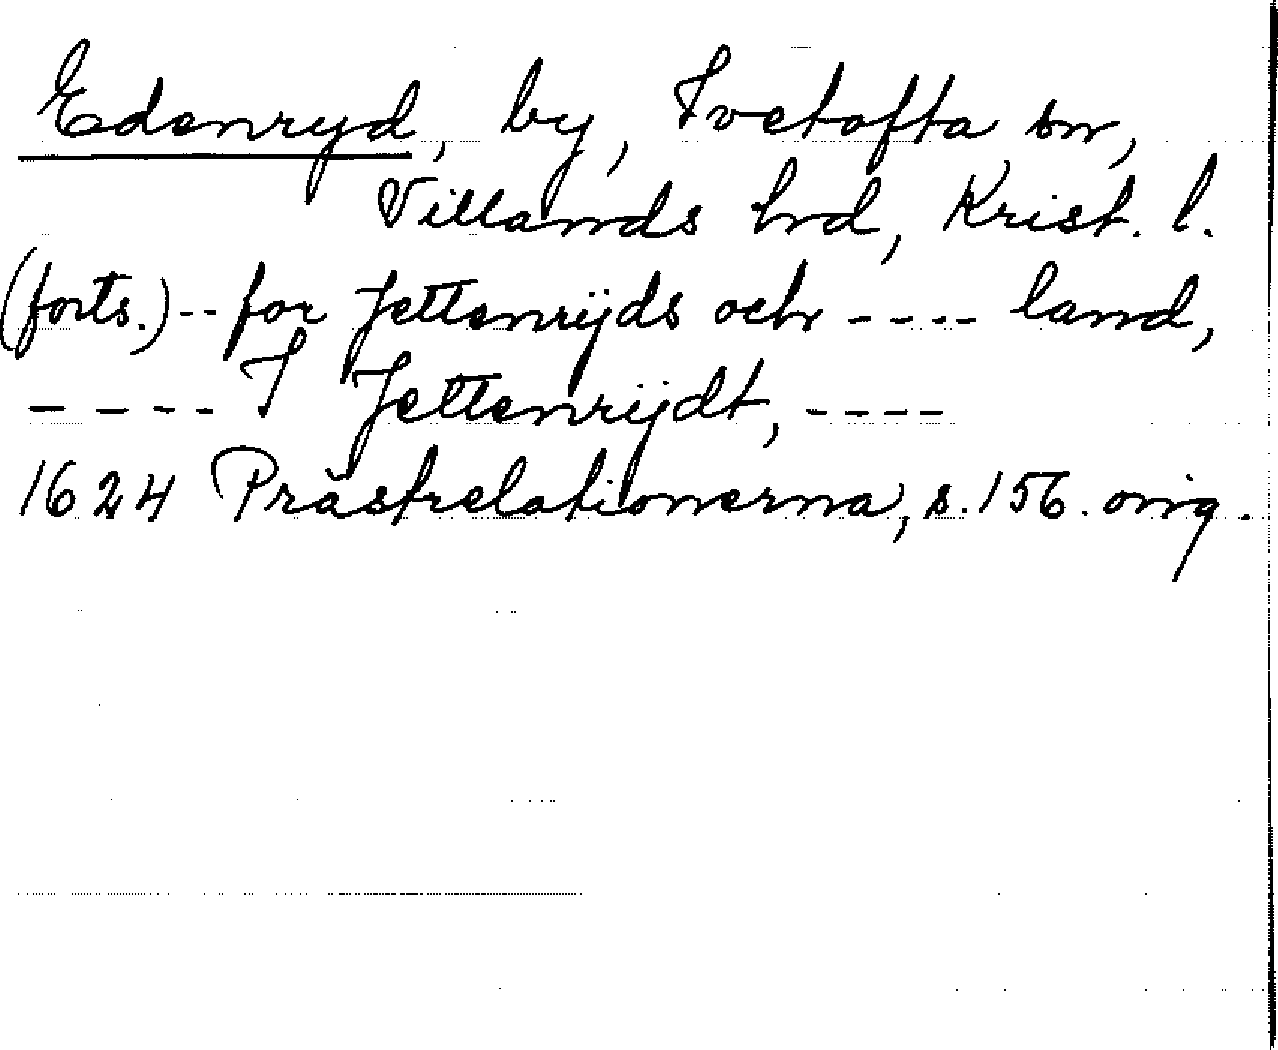 Edenryd, by, Ivetofta sn,
Villands hrd, Krist. l.
(forts.) -- for Jettenrÿds och ---- land,
---- I Jettenrÿdt, ----
1624 Prästrelationerna, s. 156. orig.